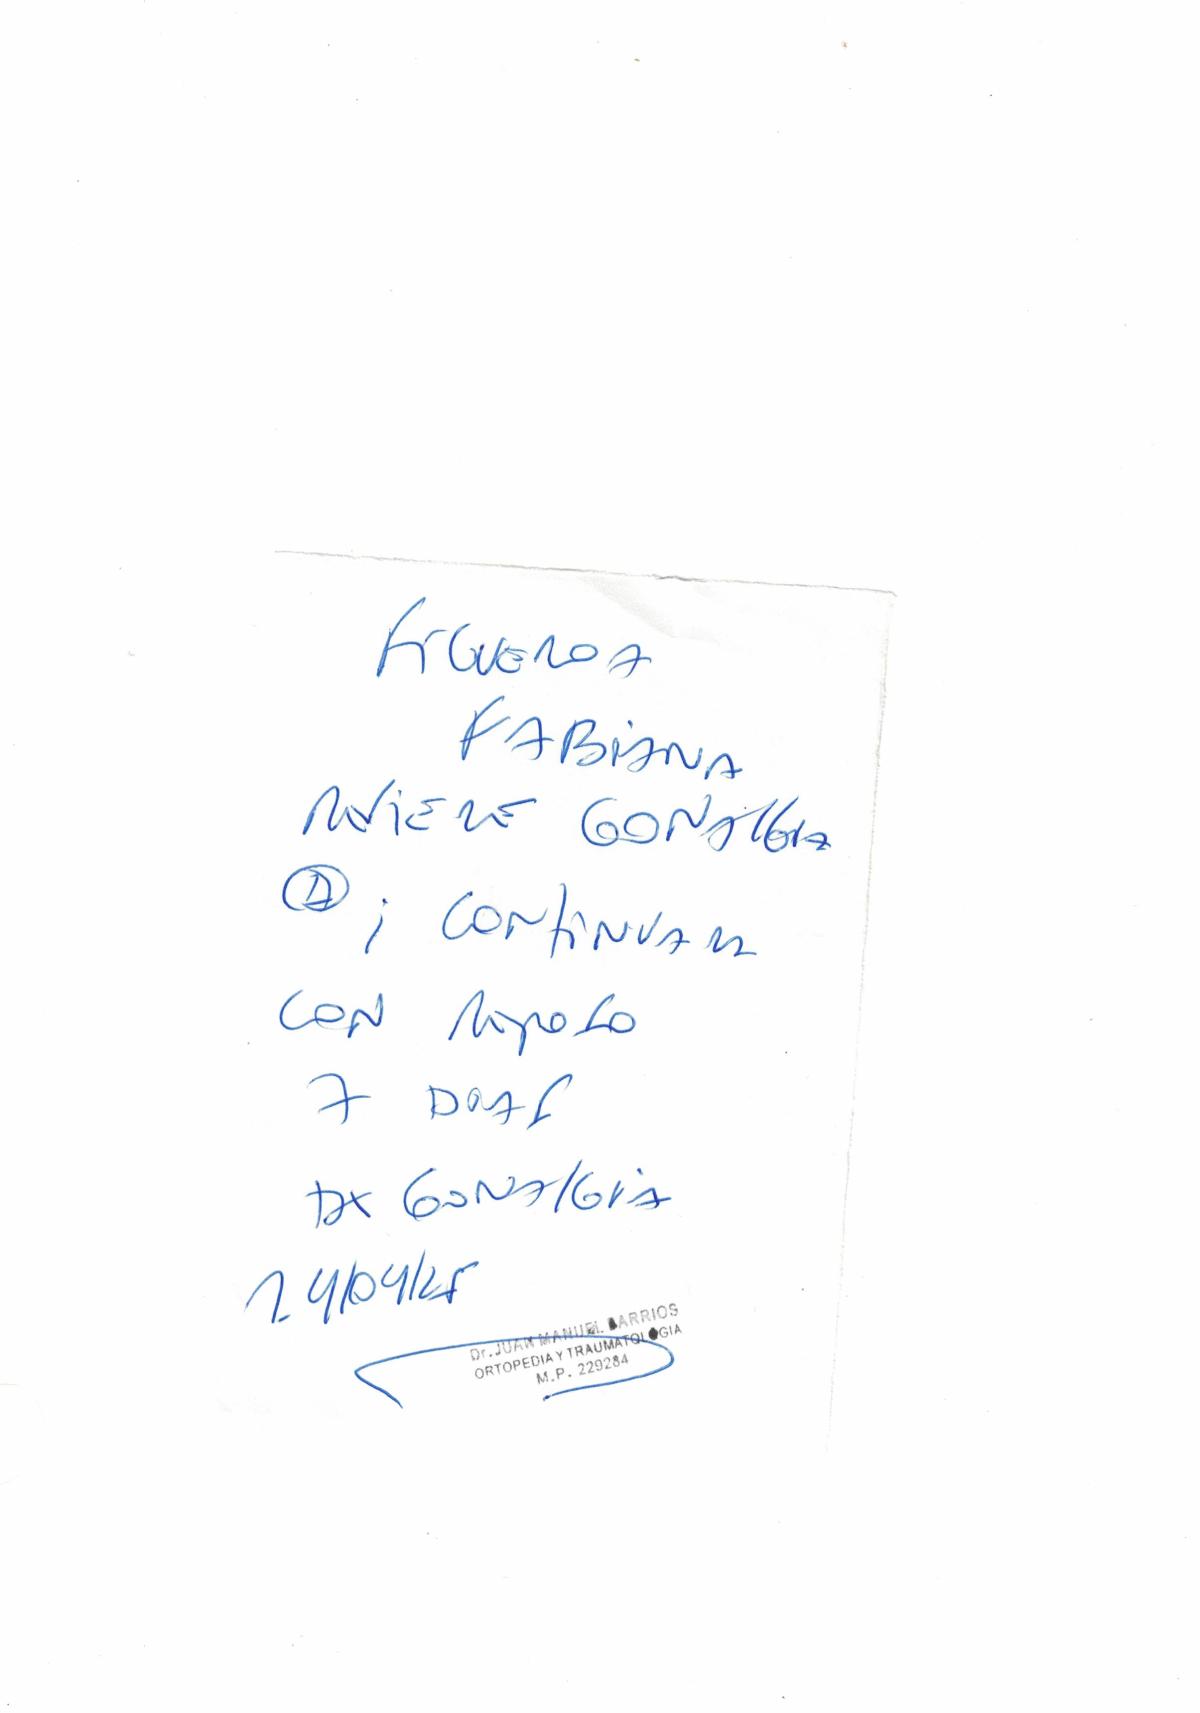 FIGUEROA
FABIANA
REFIERE GONALGIA
Ⓓ ; CONTINUAR
CON REPOSO
7 DIAS
DX GONALGIA
24/04/25
Dr. JUAN MANUEL BARRIOS
ORTOPEDIA Y TRAUMATOLOGIA
M.P. 229284